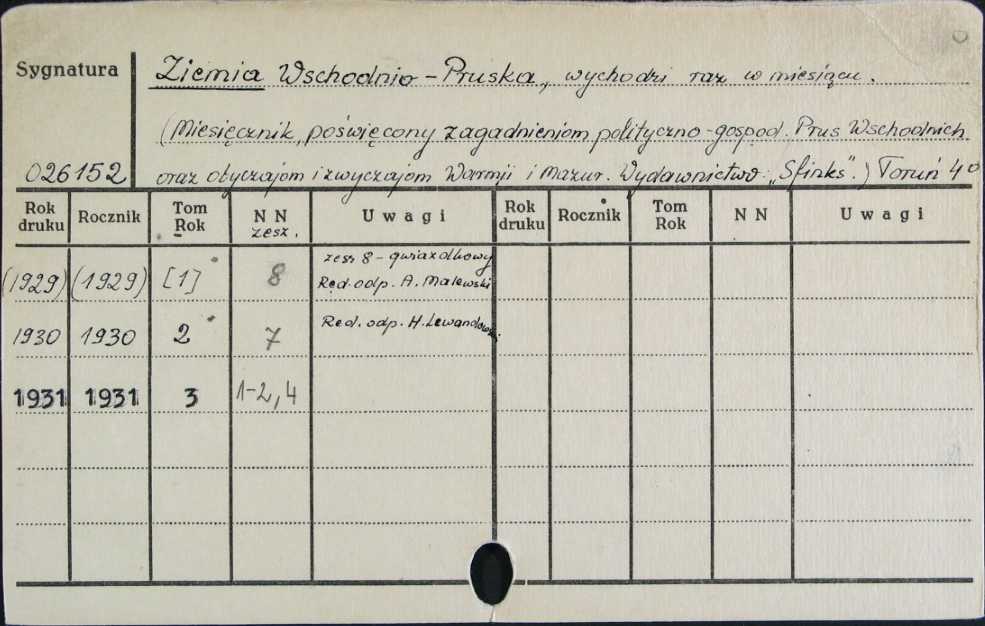 Sygnatura
Ziemia Wschodnio-Pruska, wychodzi raz w miesiącu.
(Miesięcznik, poświęcony zagadnieniom polityczno-gospod. Prus Wschodnich
026152 oraz obyczajom i zwyczajom Warmji i Mazur. Wydawnictwo: „Sfinks".) Toruń 4°
Rok druku Rocznik Tom Rok NN zesz. Uwagi Rok druku Rocznik Tom Rok NN Uwagi
zesz 8 - gwiazdkowy
(1929) (1929) [1] 8 Red. odp. A. Malewski
1930 1930 2 7 Red. odp. H. Lewandowski
1931 1931 3 1-2, 4